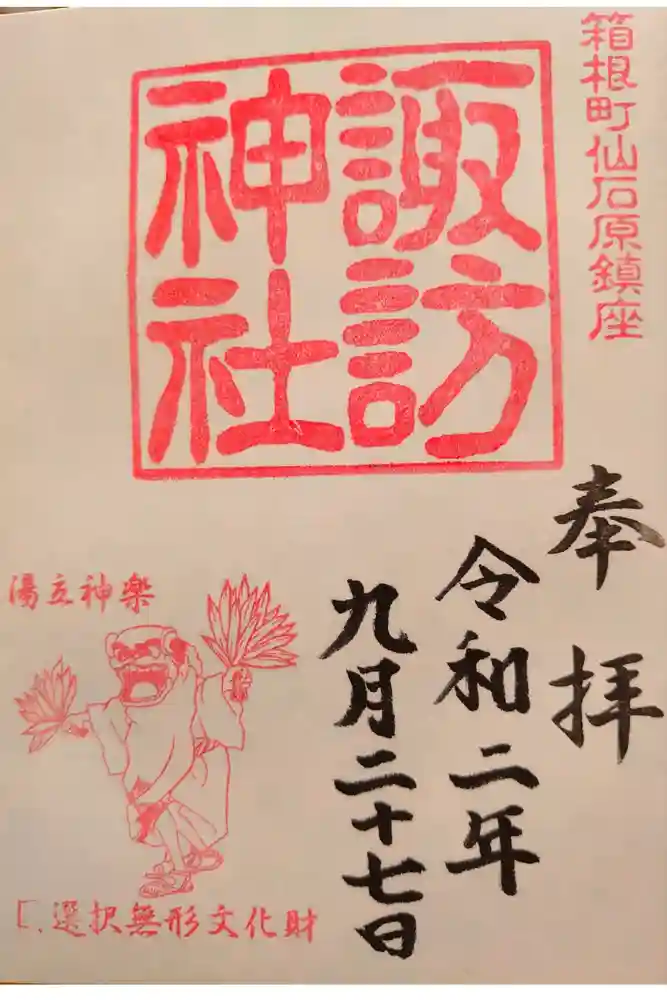 箱根町仙石原鎮座
諏訪
神社
奉拝
令和二年
九月二十七日
湯立神楽
選択無形文化財